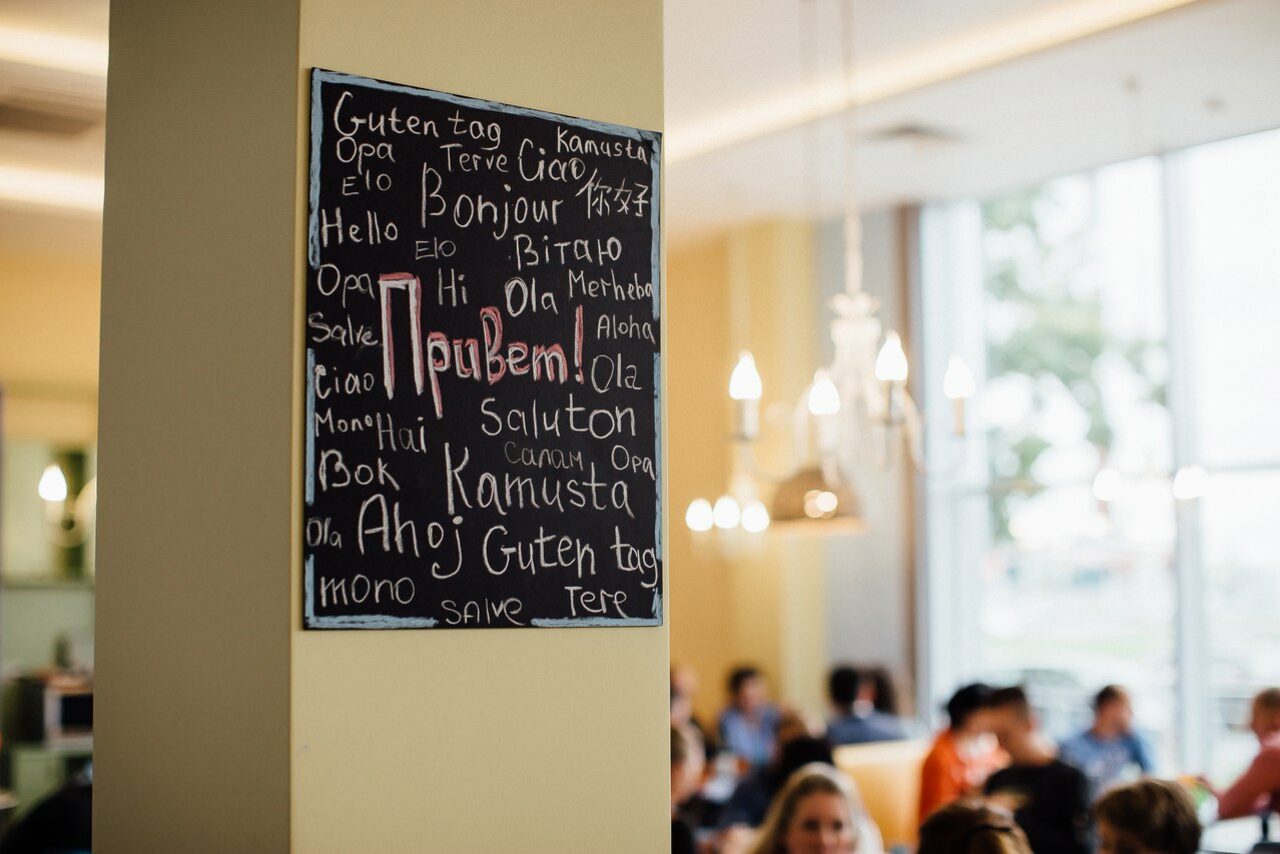 Guten tag
Kamusta
Opa
Terve
Ciao
Elo
Bonjour
你好
Hello
Elo
Вітаю
Opa
Hi
Ola
Merheba
Salve
Привет!
Aloha
Ciao
Ola
Mono
Hai
Saluton
Bok
Салам
Opa
Kamusta
Ola
Ahoj
Guten tag
mono
SAlve
Tere